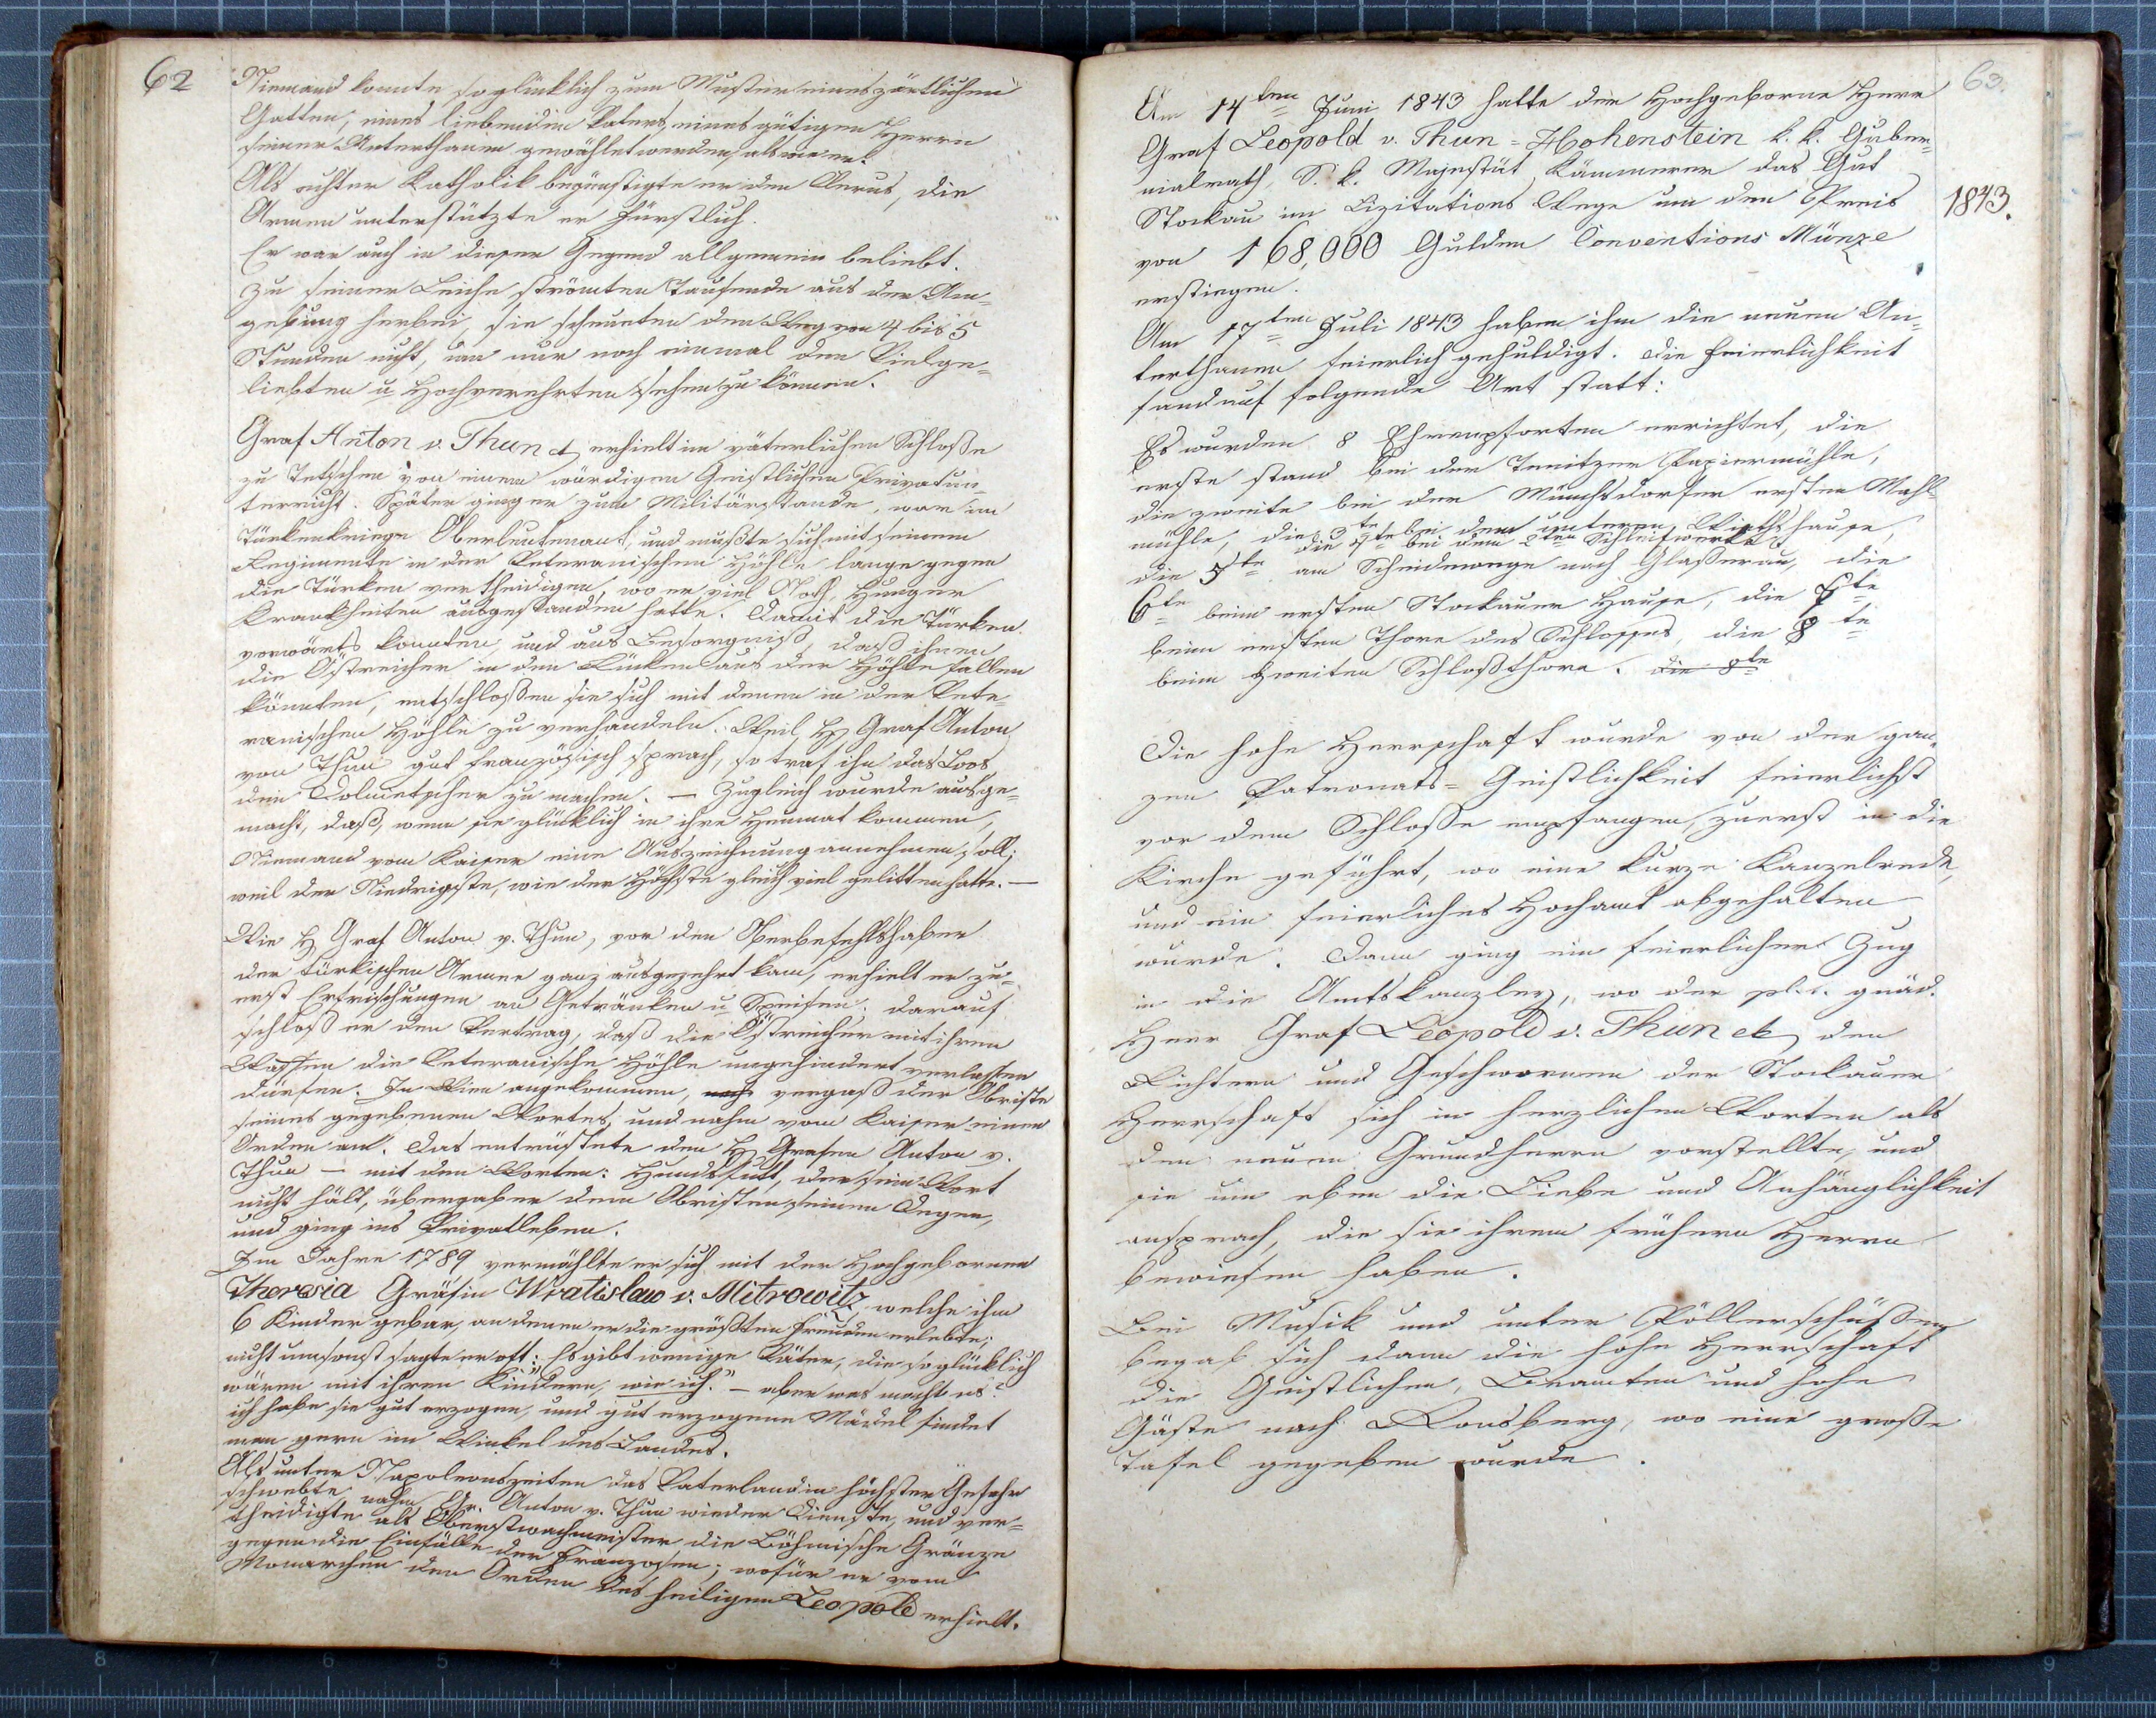 62
Niemand konnte so glücklich zum Muster eines zärtlichen
Gatten, eines liebenden Vaters, eines gütigen Herrn
seiner Unterthanen gewählet werden, als wie er.
Als echter Katholik begünstigte er den Clerus, die
Armen unterstützte er fürstlich.
Er war auch in dieser Gegend allgemein beliebt.
Zu seiner Leiche strömten Tausende aus der Um-
gebung herbei, sie scheuten den Weg von 4 bis 5
Stunden nicht, um nur noch einmal den Vielge-
liebten u Hochverehrten sehen zu können.
Graf Anton v. Thun erhielt im väterlichen Schloße
zu Tetschen von einem würdigen Geistlichen Privatun-
terricht. Später ging er zum Militärstande, war im
Türkenkriege Oberleutenant, und mußte sich mit seinem
Regimente in der Veteranischen Höhle lange gegen
die Türken vertheidigen, wo er viel Noth, Hunger
Krankheiten ausgestanden hatte. Damit die Türken
vorwärts konnten, und aus Besorgniß, daß ihnen
die Östreicher in den Rücken aus der Höhle fallen
könnten, entschloßen sie sich mit denen in der Vete-
ranischen Höhle zu verhandeln. Weil H Graf Anton
von Thun gut französisch sprach, so traf ihn das Loos
den Dolmetscher zu machen. — Zugleich wurde ausge-
macht, daß, wenn sie glücklich in ihre Heimat kommen,
Niemand vom Kaiser eine Auszeichnung annehmen soll,
weil der Niedrigste, wie der Höchste gleich viel gelitten hatte. —
Wie H Graf Anton v. Thun, vor den Oberbefehlshaber
der türkischen Armee ganz ausgezehrt kam, erhielt er zu-
erst Erfrischungen an Getränken u Speisen. Darauf
schloß er den Vertrag, daß die Östreicher mit ihren
Waffen die Veteranische Höhle ungehindert verlassen
dürfen. In Wien angekommen, vergaß der Obriste
seines gegebenen Wortes, und nahm vom Kaiser einen
Orden an. Das entrüstete den H Grafen Anton v.
Thun — mit den Worten: Hundsfutt, der sein Wort
nicht hält, übergab er dem Obristen seinen Degen,
und ging ins Privatleben.
Im Jahre 1789 vermählte er sich mit der Hochgebornen
Theresia Gräfin Wratislaw v. Mitrowitz welche ihm
6 Kinder gebar, an denen er die größten Freuden erlebte;
nicht umsonst sagte er oft: „Es gibt wenige Väter, die so glücklich
wären mit ihren Kindern, wie ich." — aber was macht es?
ich habe sie gut erzogen, und gut erzogene Mädel findet
man gern im Winkel des Landes.
Als unter Napoleonszeiten das Vaterland in höchster Gefahr
schwebte nahm Gr. Anton v. Thun wieder Dienste, und ver-
theidigte als Oberstwachmeister die Böhmische Gränze
gegen die Einfälle der Franzosen; wofür er vom
Monarchen den Orden des heiligen Leopold erhielt.
63.
Am 14ten Juni 1843 hatte der Hochgeborne Herr
Graf Leopold v. Thun-Hohenstein k. k. Guber-
nialrath, S. k. Majestät Kämmerer das Gut
Stockau im Lizitations Wege um den Preis
1843.
von 168,000 Gulden Conventions Münze
erstiegen.
Am 17ten Juli 1843 haben ihm die neuen Un-
terthanen feierlich gehuldigt. Die Feierlichkeit
fand auf folgende Art statt:
Es wurden 8 Ehrenpforten errichtet, die
erste stand bei der Tenitzer Papiermühle,
die zweite bei der Münchsdorfer ersten Mahl-
mühle, die 3te bei dem unteren Wirthshause,
die 4te bei dem 2ten Schleifwerke
die 5te am Scheidewege nach Glaßerau, die
6te beim ersten Stockauer Hause, die 7te
beim ersten Thore des Schlosses, die 8te
beim zweiten Schloßthore. die 8te
Die hohe Herrschaft wurde von der gan-
zen Patronats-Geistlichkeit feierlichst
vor dem Schloße empfangen, zuerst in die
Kirche geführt, wo eine kurze Kanzelrede,
und ein feierliches Hochamt abgehalten
wurde. Dann ging ein feierlicher Zug
in die Amtskanzley, wo der pl. t. gnäd.
Herr Graf Leopold v. Thun etc den
Richtern und Geschwornen der Stockauer
Herrschaft sich in herzlichen Worten als
den neuen Grundherrn vorstellte, und
sie um eben die Liebe und Anhänglichkeit
ansprach, die sie ihrem frühern Herrn
bewiesen haben.
Bei Musik und unter Pöllerschüßen
begab sich dann die hohe Herrschaft
die Geistlichen, Beamten und hohe
Gäste nach Ronsberg, wo eine große
Tafel gegeben wurde.